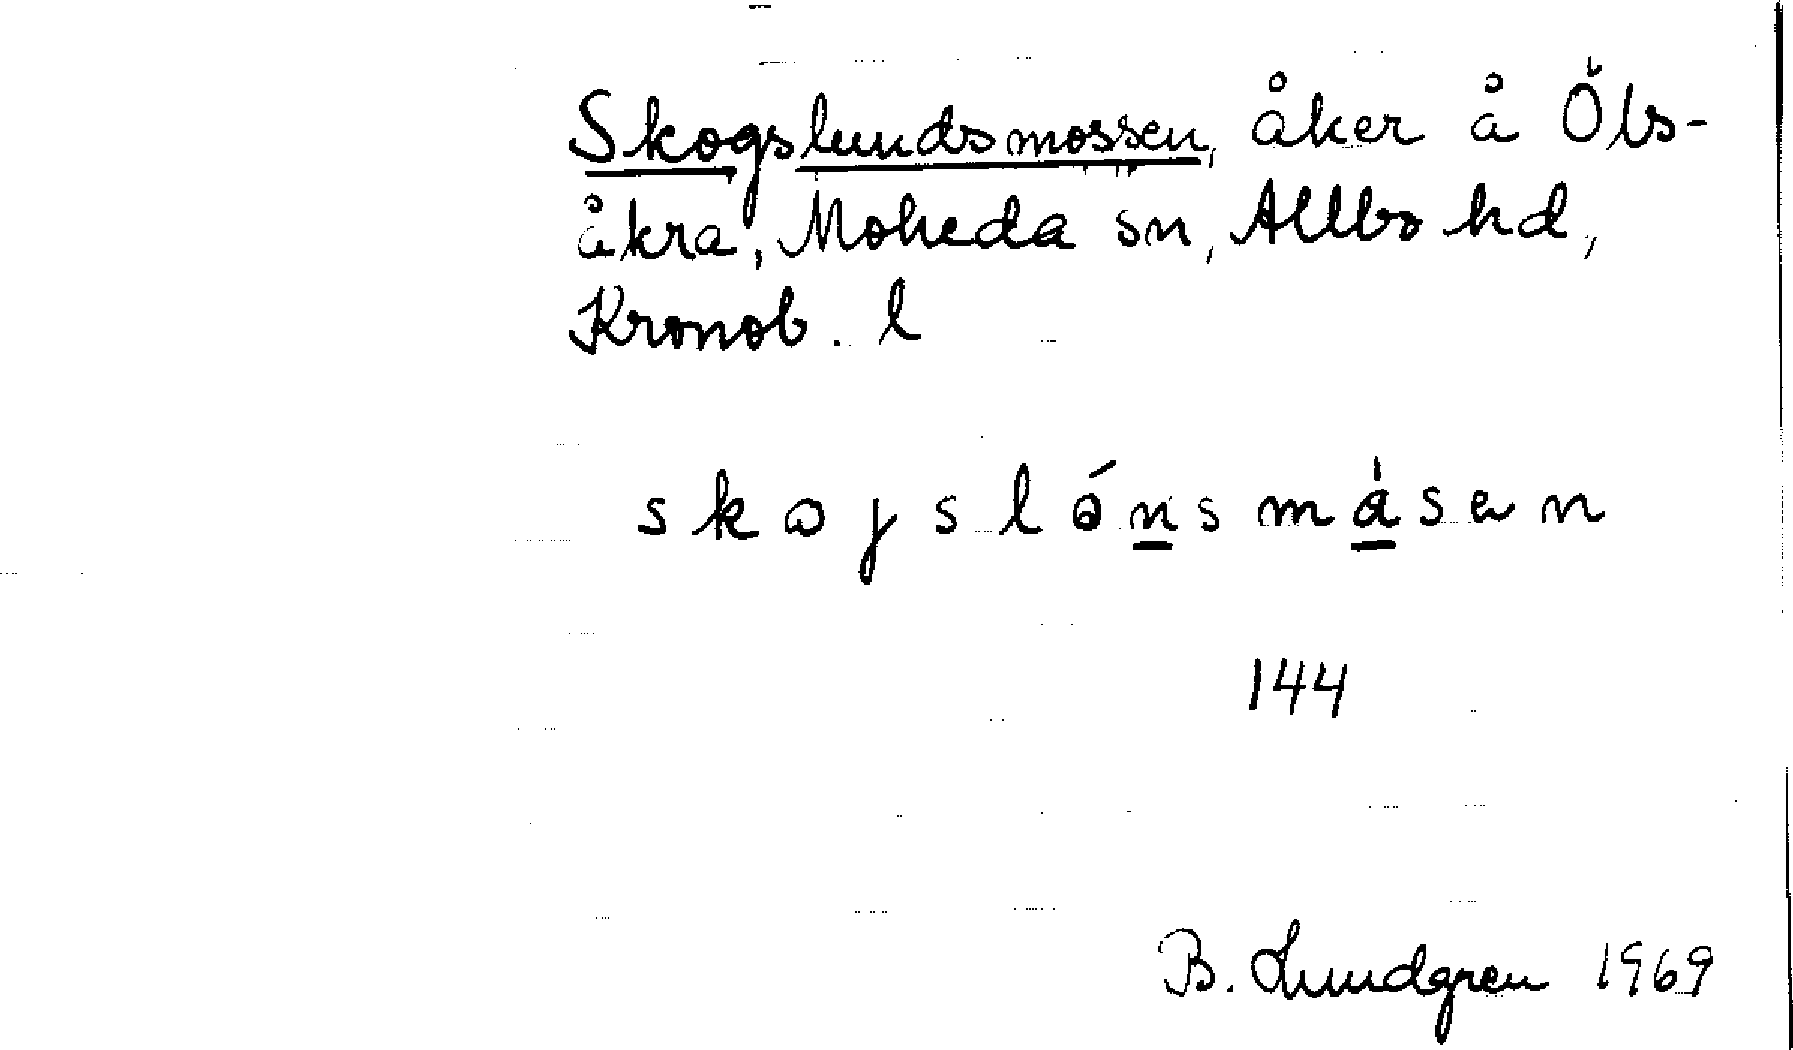 Skogslundsmossen, åker å Öls-
åkra, Moheda sn, Allbo hd,
Kronob. l
skogslónsmásen
144
B. Lundgren 1969